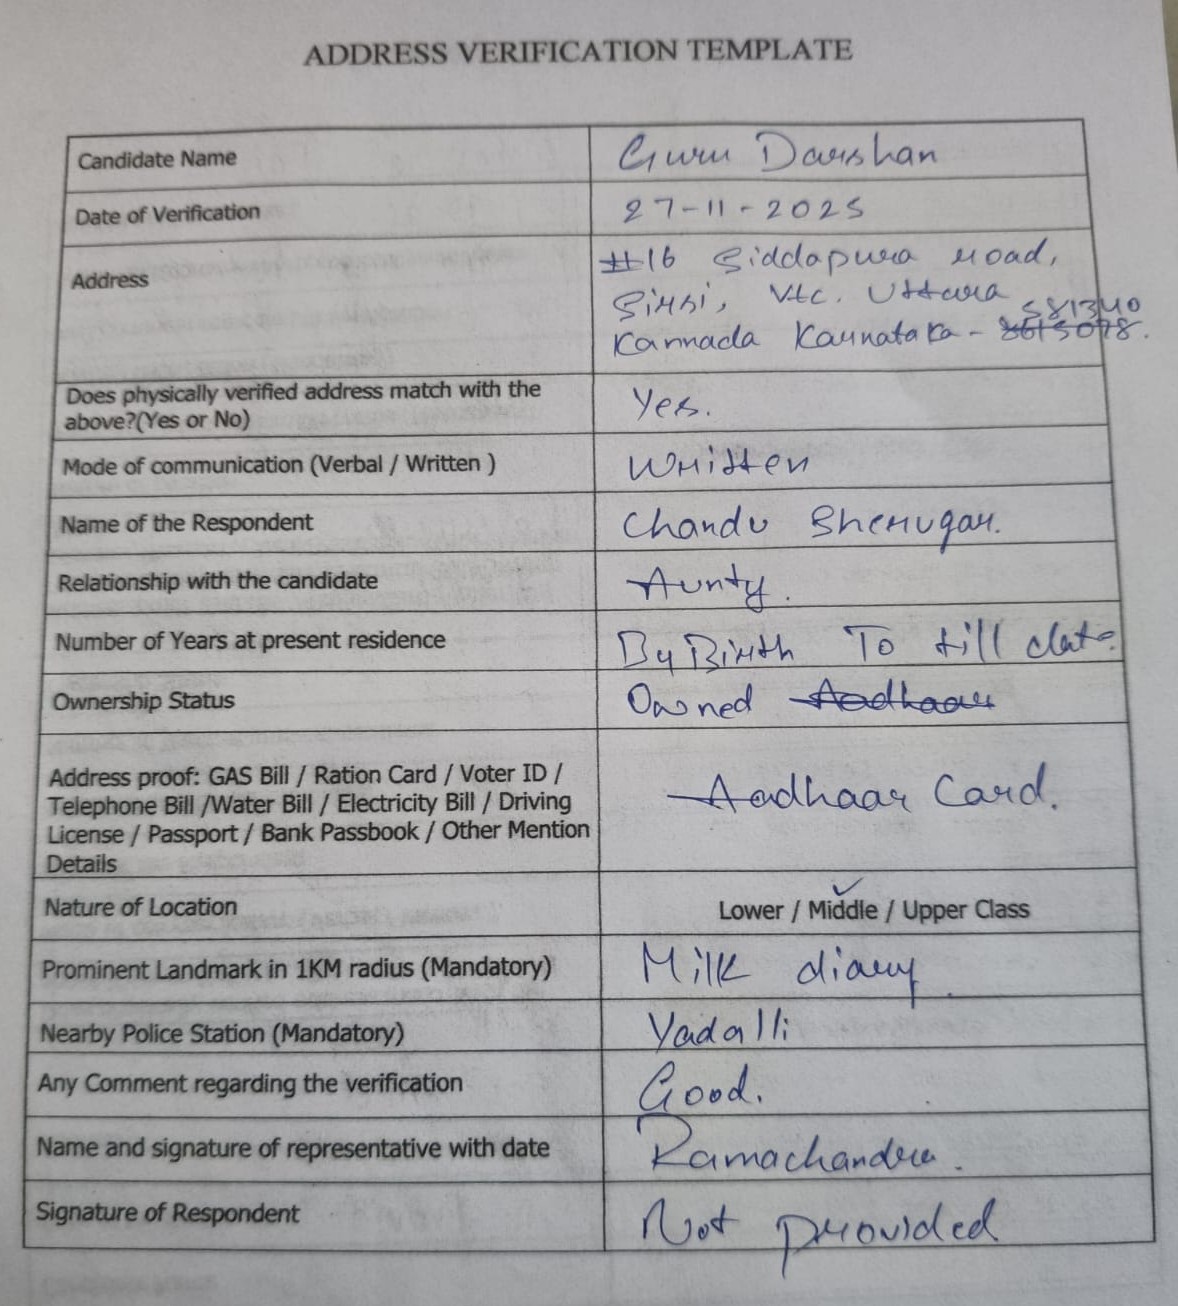 ADDRESS VERIFICATION TEMPLATE
Candidate Name Guru Darshan
Date of Verification 27-11-2025
Address #16 Siddapura road,
Sirsi, Vtc. Uttara
581340
Kannada Karnataka-
Does physically verified address match with the
above?(Yes or No) Yes.
Mode of communication (Verbal / Written ) Written
Name of the Respondent Chandu Sherugar.
Relationship with the candidate Aunty.
Number of Years at present residence By Birth To till date.
Ownership Status Owned Aadhaar
Address proof: GAS Bill / Ration Card / Voter ID /
Telephone Bill /Water Bill / Electricity Bill / Driving
License / Passport / Bank Passbook / Other Mention
Details
Aadhaar Card.
Nature of Location Lower / Middle / Upper Class
Prominent Landmark in 1KM radius (Mandatory) Milk diary.
Nearby Police Station (Mandatory) Yadalli
Any Comment regarding the verification Good.
Name and signature of representative with date Ramachandra.
Signature of Respondent Not provided